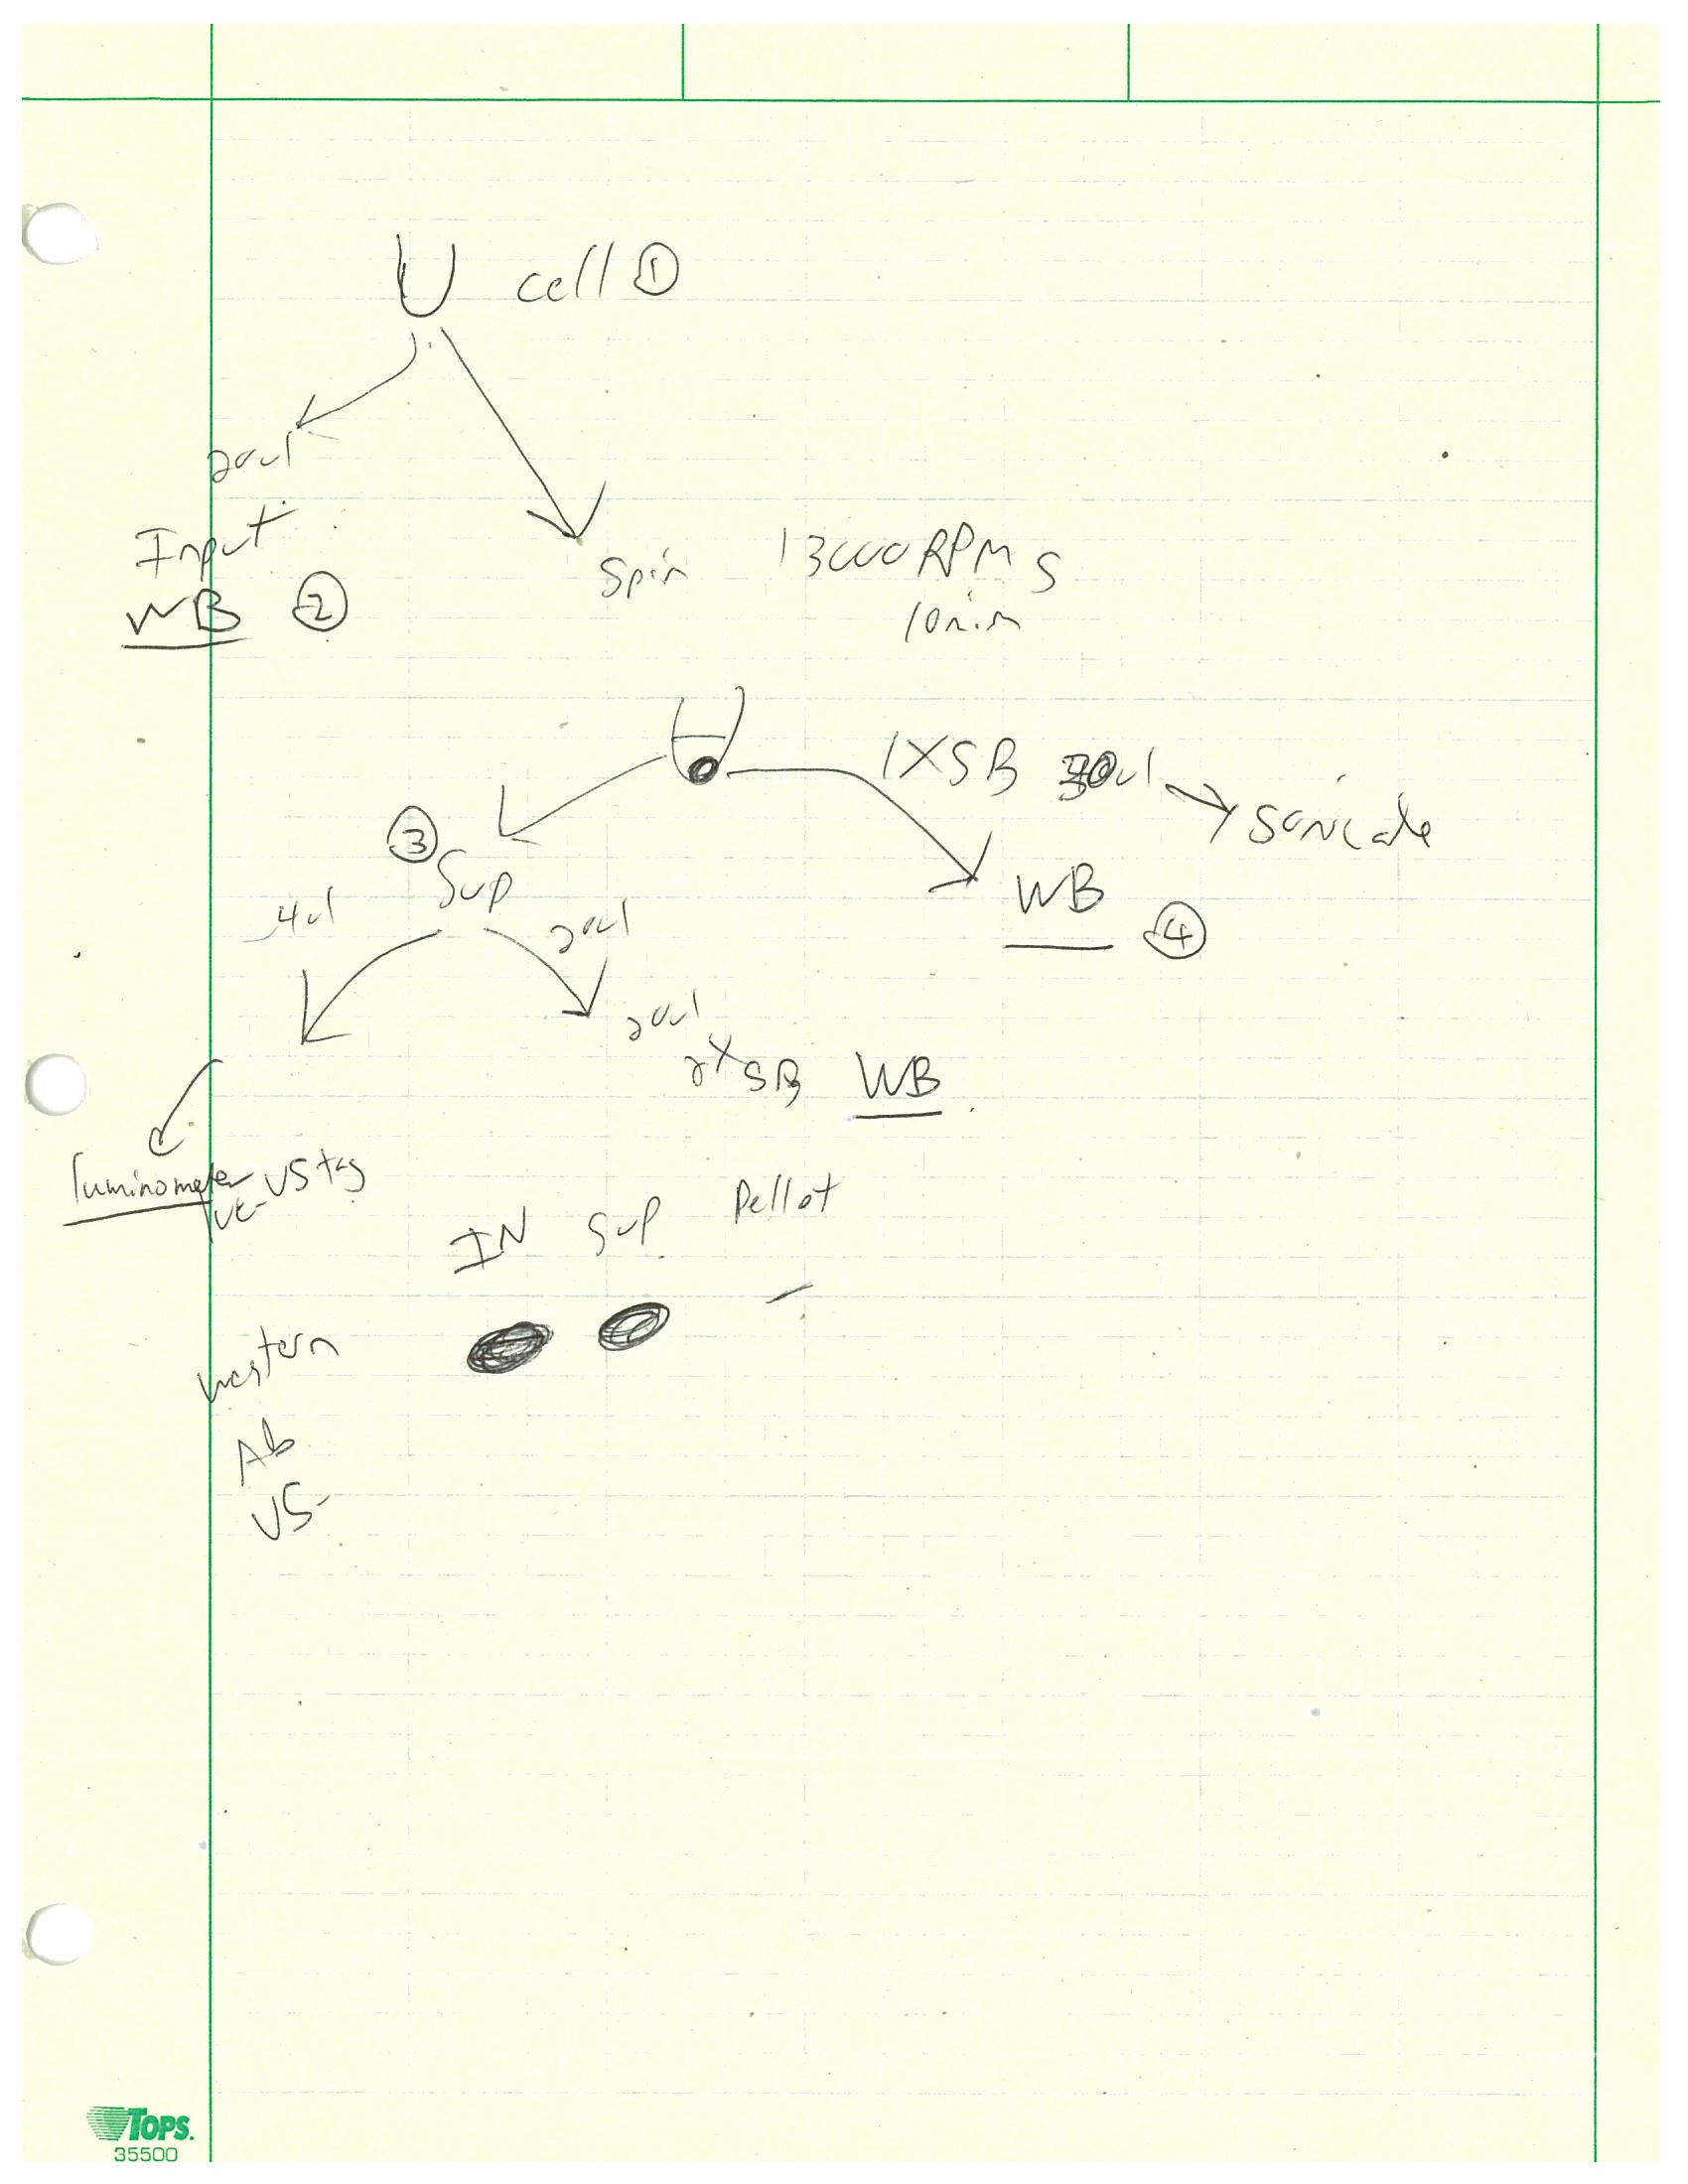 cell ①
20ul
Input
WB ②
Spin 13000 RPMs
10min
1XSB ul → Sonicate
③
Sup
WB ④
4ul
20ul
20ul
2X SB WB
luminometer
V5 tag
IN Sup Pellet
western
Ab
V5-
TOPS.
35500